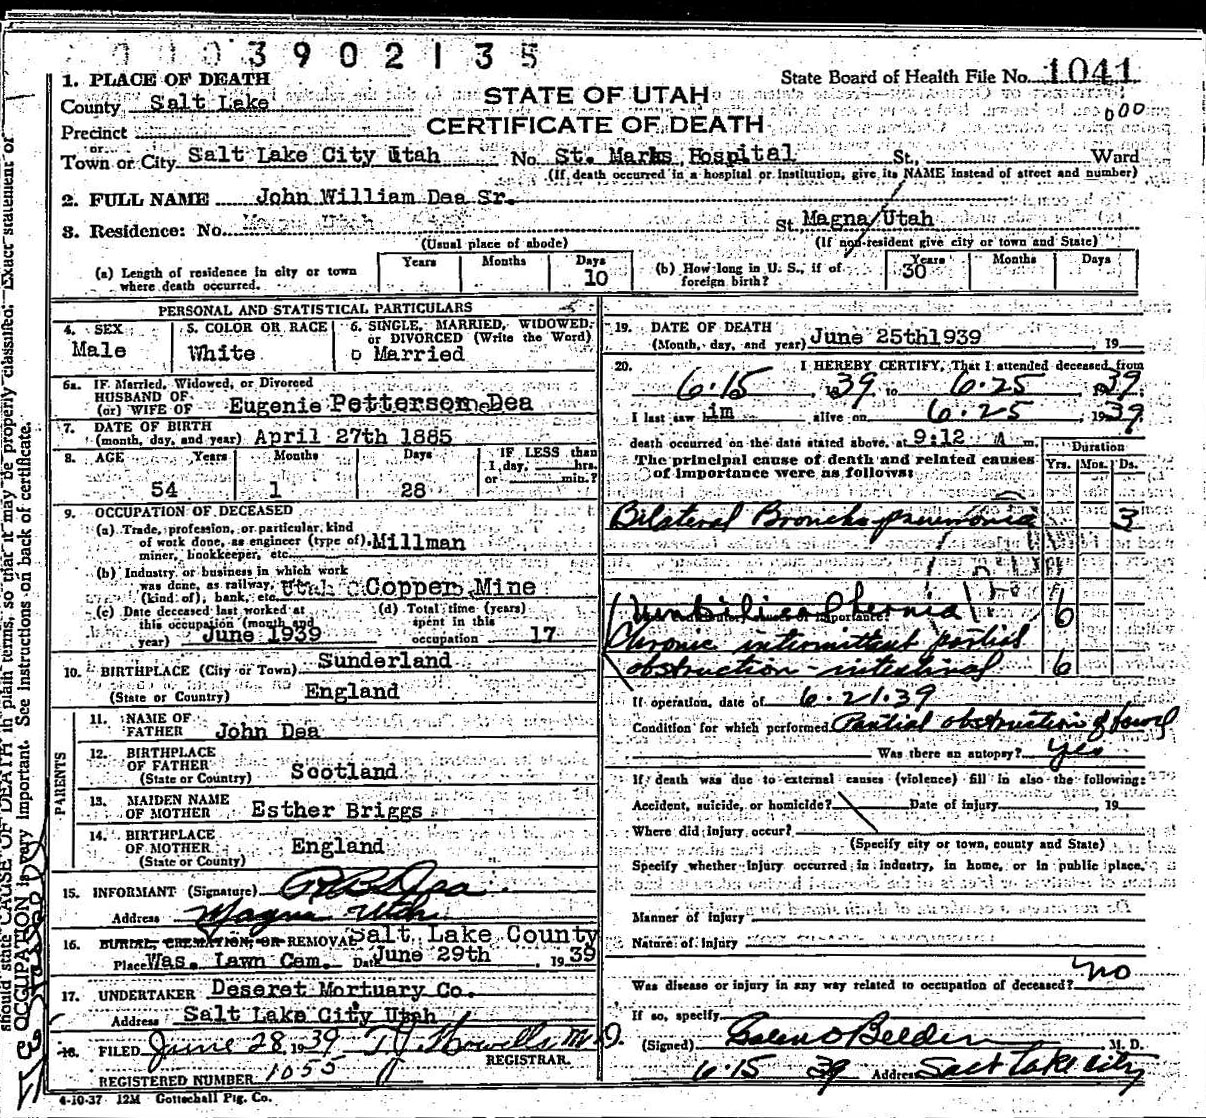 3 9 0 2 1 3 5
1. PLACE OF DEATH
State Board of Health File No. 1041
County Salt Lake
STATE OF UTAH
000
Precinct
CERTIFICATE OF DEATH
or
Town or City Salt Lake City Utah No. St. Marks Hospital St., Ward
(If death occurred in a hospital or institution, give its NAME instead of street and number)
2. FULL NAME John William Dea Sr.
3. Residence: No. St. Magna Utah
(Usual place of abode) (If non-resident give city or town and State)
(a) Length of residence in city or town where death occurred. Years Months Days 10
(b) How long in U. S., if of foreign birth? Years 30 Months Days
PERSONAL AND STATISTICAL PARTICULARS
4. SEX Male
5. COLOR OR RACE White
6. SINGLE, MARRIED, WIDOWED, or DIVORCED (Write the Word) Married
6a. IF Married, Widowed, or Divorced
HUSBAND OF
(or) WIFE OF Eugenie Petterson Dea
7. DATE OF BIRTH
(month, day, and year) April 27th 1885
8. AGE Years Months Days IF LESS than
1 day, hrs.
or min.?
54 1 28
9. OCCUPATION OF DECEASED
(a) Trade, profession, or particular kind
of work done, as engineer (type of), Millman
miner, bookkeeper, etc.
(b) Industry or business in which work
was done, as railway, Utah Copper Mine
(kind of), bank, etc.
(c) Date deceased last worked at
this occupation (month and
year) June 1939
(d) Total time (years)
spent in this
occupation 17
10. BIRTHPLACE (City or Town) Sunderland
(State or Country) England
PARENTS
11. NAME OF
FATHER John Dea
12. BIRTHPLACE
OF FATHER
(State or Country) Scotland
13. MAIDEN NAME
OF MOTHER Esther Briggs
14. BIRTHPLACE
OF MOTHER England
(State or Country)
15. INFORMANT (Signature)
Address Magna Utah
16. BURIAL, CREMATION, OR REMOVAL Salt Lake County
Place Was. Lawn Cem. Date June 29th 1939
17. UNDERTAKER Deseret Mortuary Co.
Address Salt Lake City Utah
18. FILED June 28, 1939 T J Howells M.D.
REGISTRAR.
REGISTERED NUMBER 1055
4-10-37 12M Gottschall Ptg. Co.
19. DATE OF DEATH
(Month, day, and year) June 25th1939, 19
20. I HEREBY CERTIFY, That I attended deceased from
6-15 1939 to 6-25 1939
I last saw im alive on 6-25 1939
death occurred on the date stated above, at 9:12 A m.
The principal cause of death and related causes
of importance were as follows:
Duration
Yrs. Mos. Ds.
Bilateral Broncho pneumonia 3
Umbilical hernia 6
Chronic intermittent partial
obstruction - intestinal 6
If operation, date of 6-21-39
Condition for which performed Partial obstruction of bowel
Was there an autopsy? yes
If death was due to external causes (violence) fill in also the following:
Accident, suicide, or homicide? Date of injury 19
Where did injury occur?
(Specify city or town, county and State)
Specify whether injury occurred in industry, in home, or in public place.
Manner of injury
Nature of injury
Was disease or injury in any way related to occupation of deceased? no
If so, specify
(Signed) Galen O Belden M. D.
6-15 39 Address Salt Lake City
should state CAUSE OF DEATH in plain terms, so that it may be properly classified. Exact statement of
OCCUPATION is very important. See instructions on back of certificate.